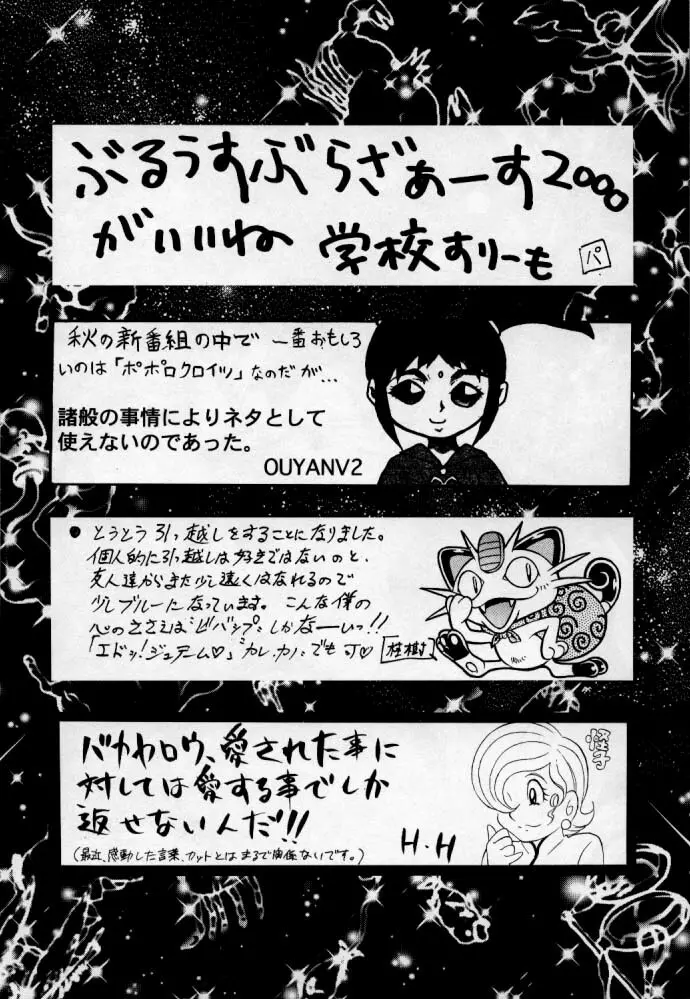 ぶるうすぶらざぁーす2000
がいいね 学校すりーも パ
秋の新番組の中で 一番おもしろ
いのは「ポポロクロイツ」なのだが…
諸般の事情によりネタとして
使えないのであった。
OUYANV2
● とうとう引っ越しをすることになりました。
個人的に引っ越しは好きではないのと、
友人達からまた少し遠くはなれるので
少しブルーになっています。こんな僕の
心のささえは"ビバップ"しかなーいっ!!
「エドッ!ジュテーム♡」"カレカノ"でも可♡ 桂樹
バカヤロウ、愛された事に
対しては愛する事でしか
返せないんだ!!
(最近、感動した言葉、カットとはまるで関係ないです。)
H.H
怪子